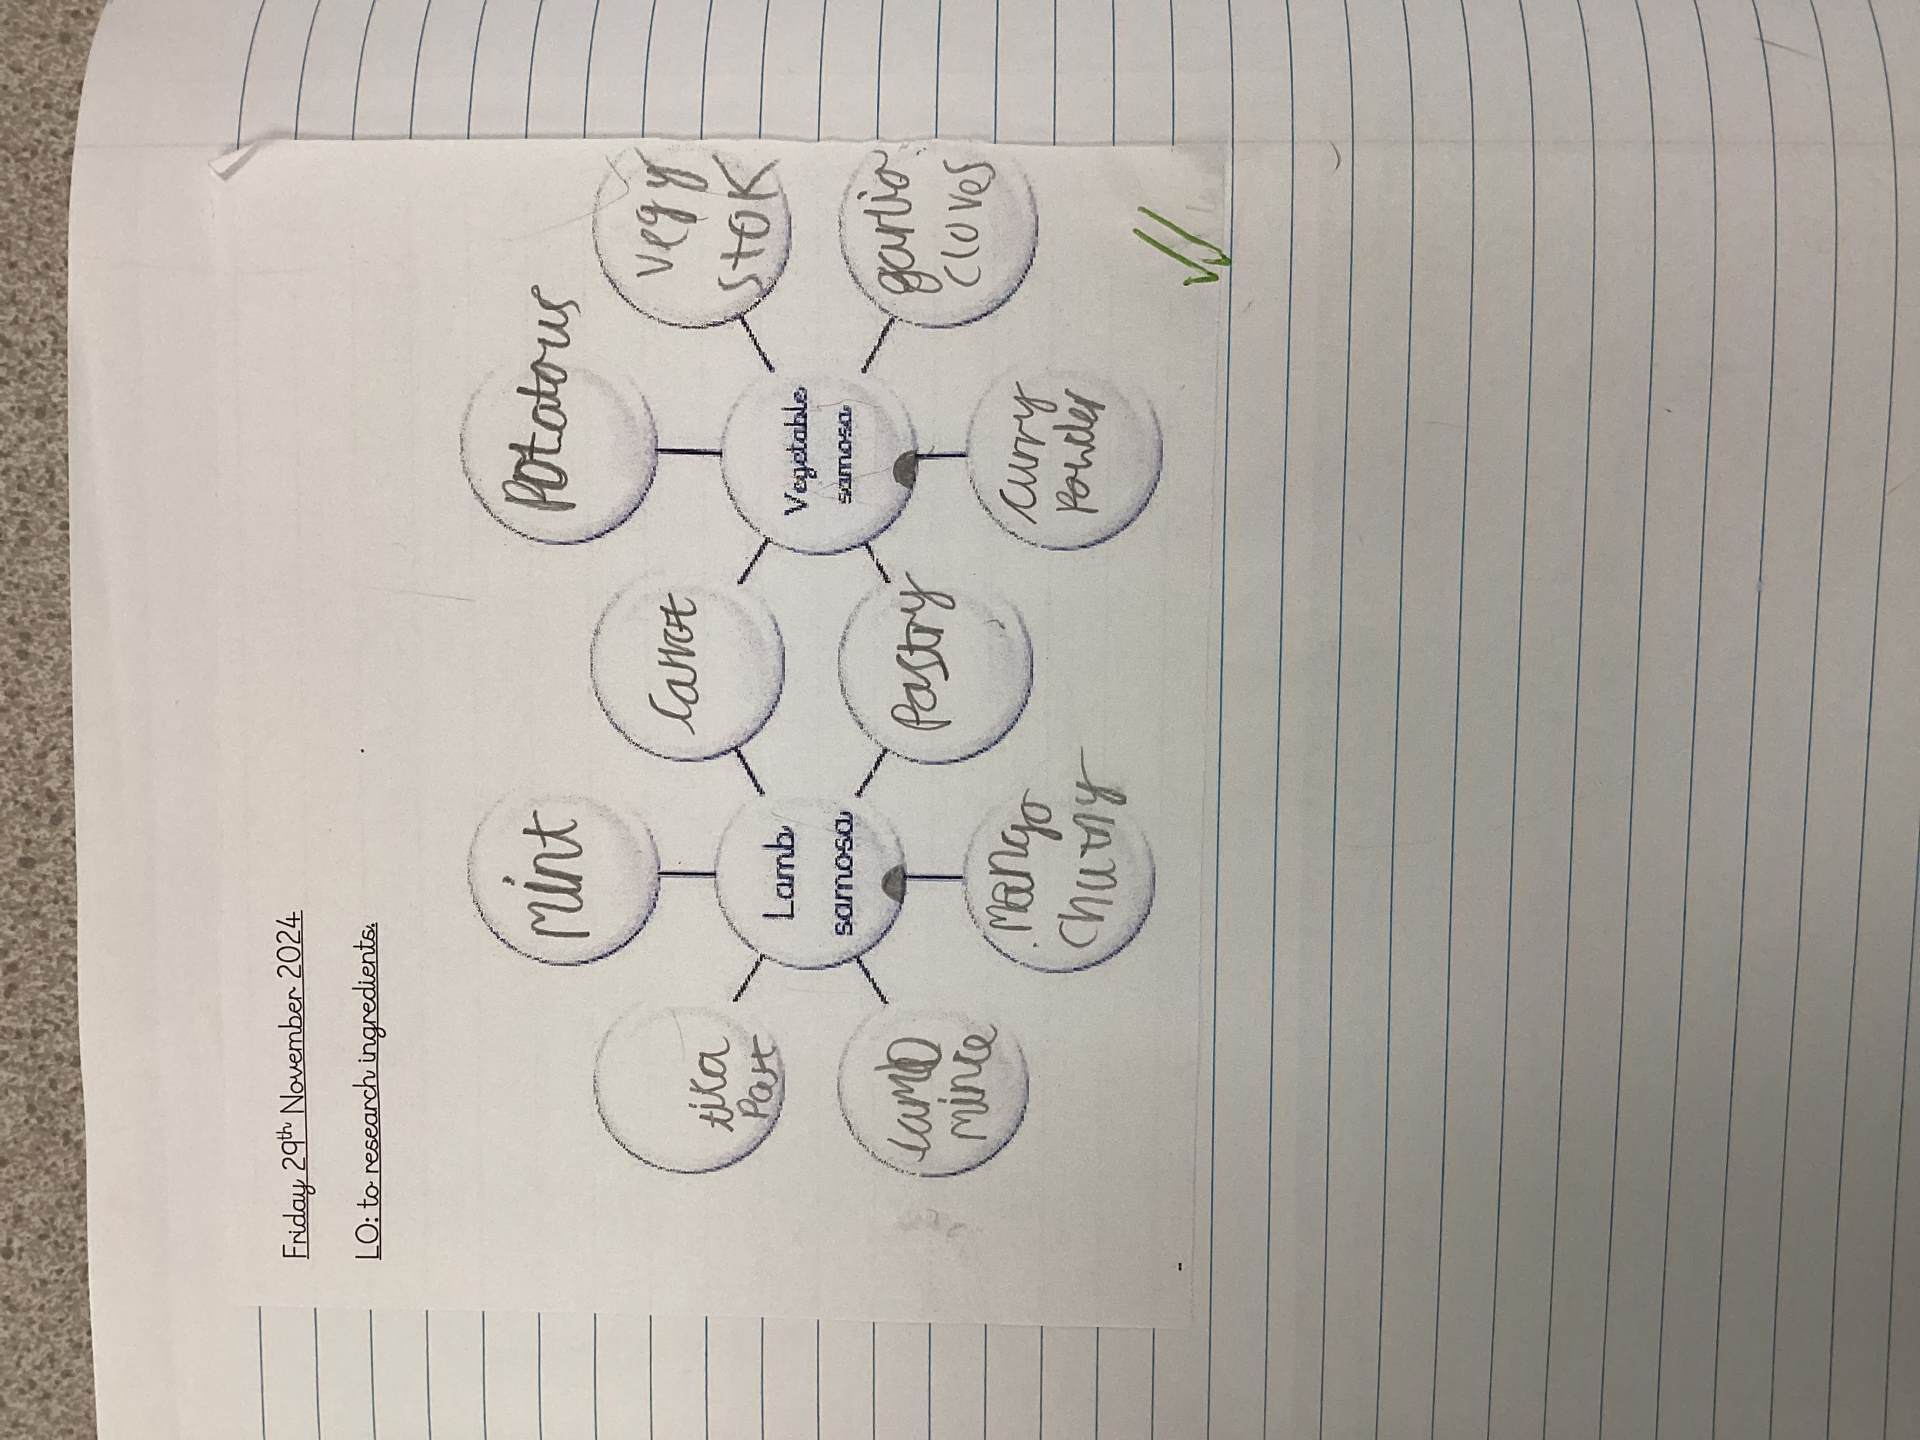 Friday 29th November 2024
LO: to research ingredients.
mint
Potatous
tika
Part
carrot
Vegy
stok
Lamb
samosa
Vegetable
samosa
Lamb
mince
Pastry
garlic
cloves
mango
chutny
curry
Powder